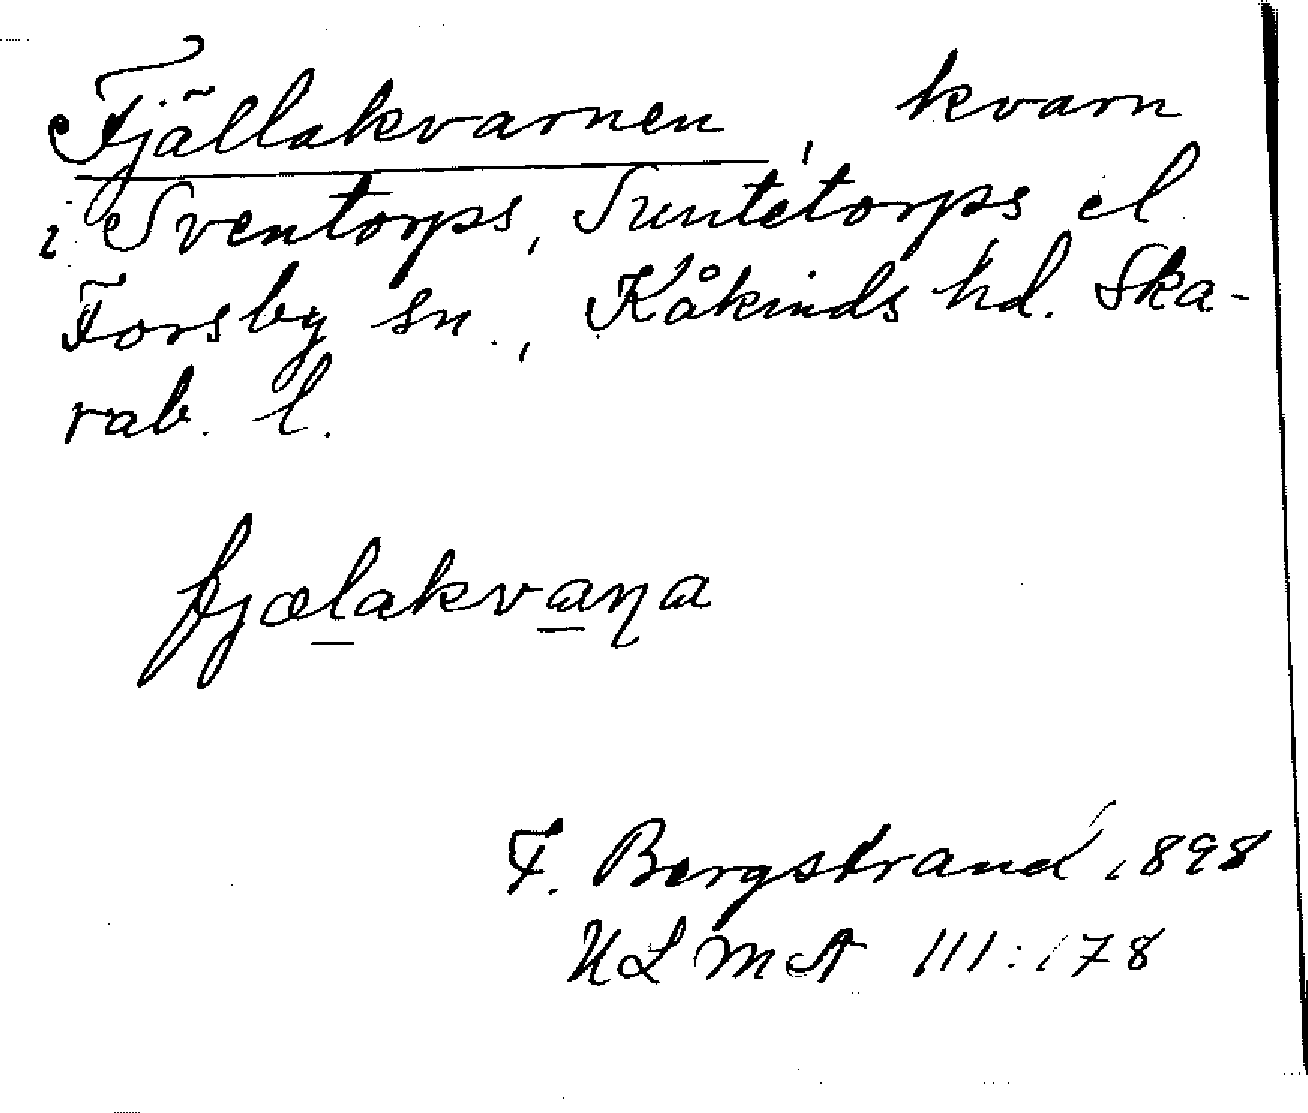 Fjällakvarnen, kvarn
i Sventorps, Suntetorps el
Forsby sn., Kåkinds hd. Ska-
rab. l.
fjælakvaŋa
F. Bergstrand 1898
ULMA 111:178